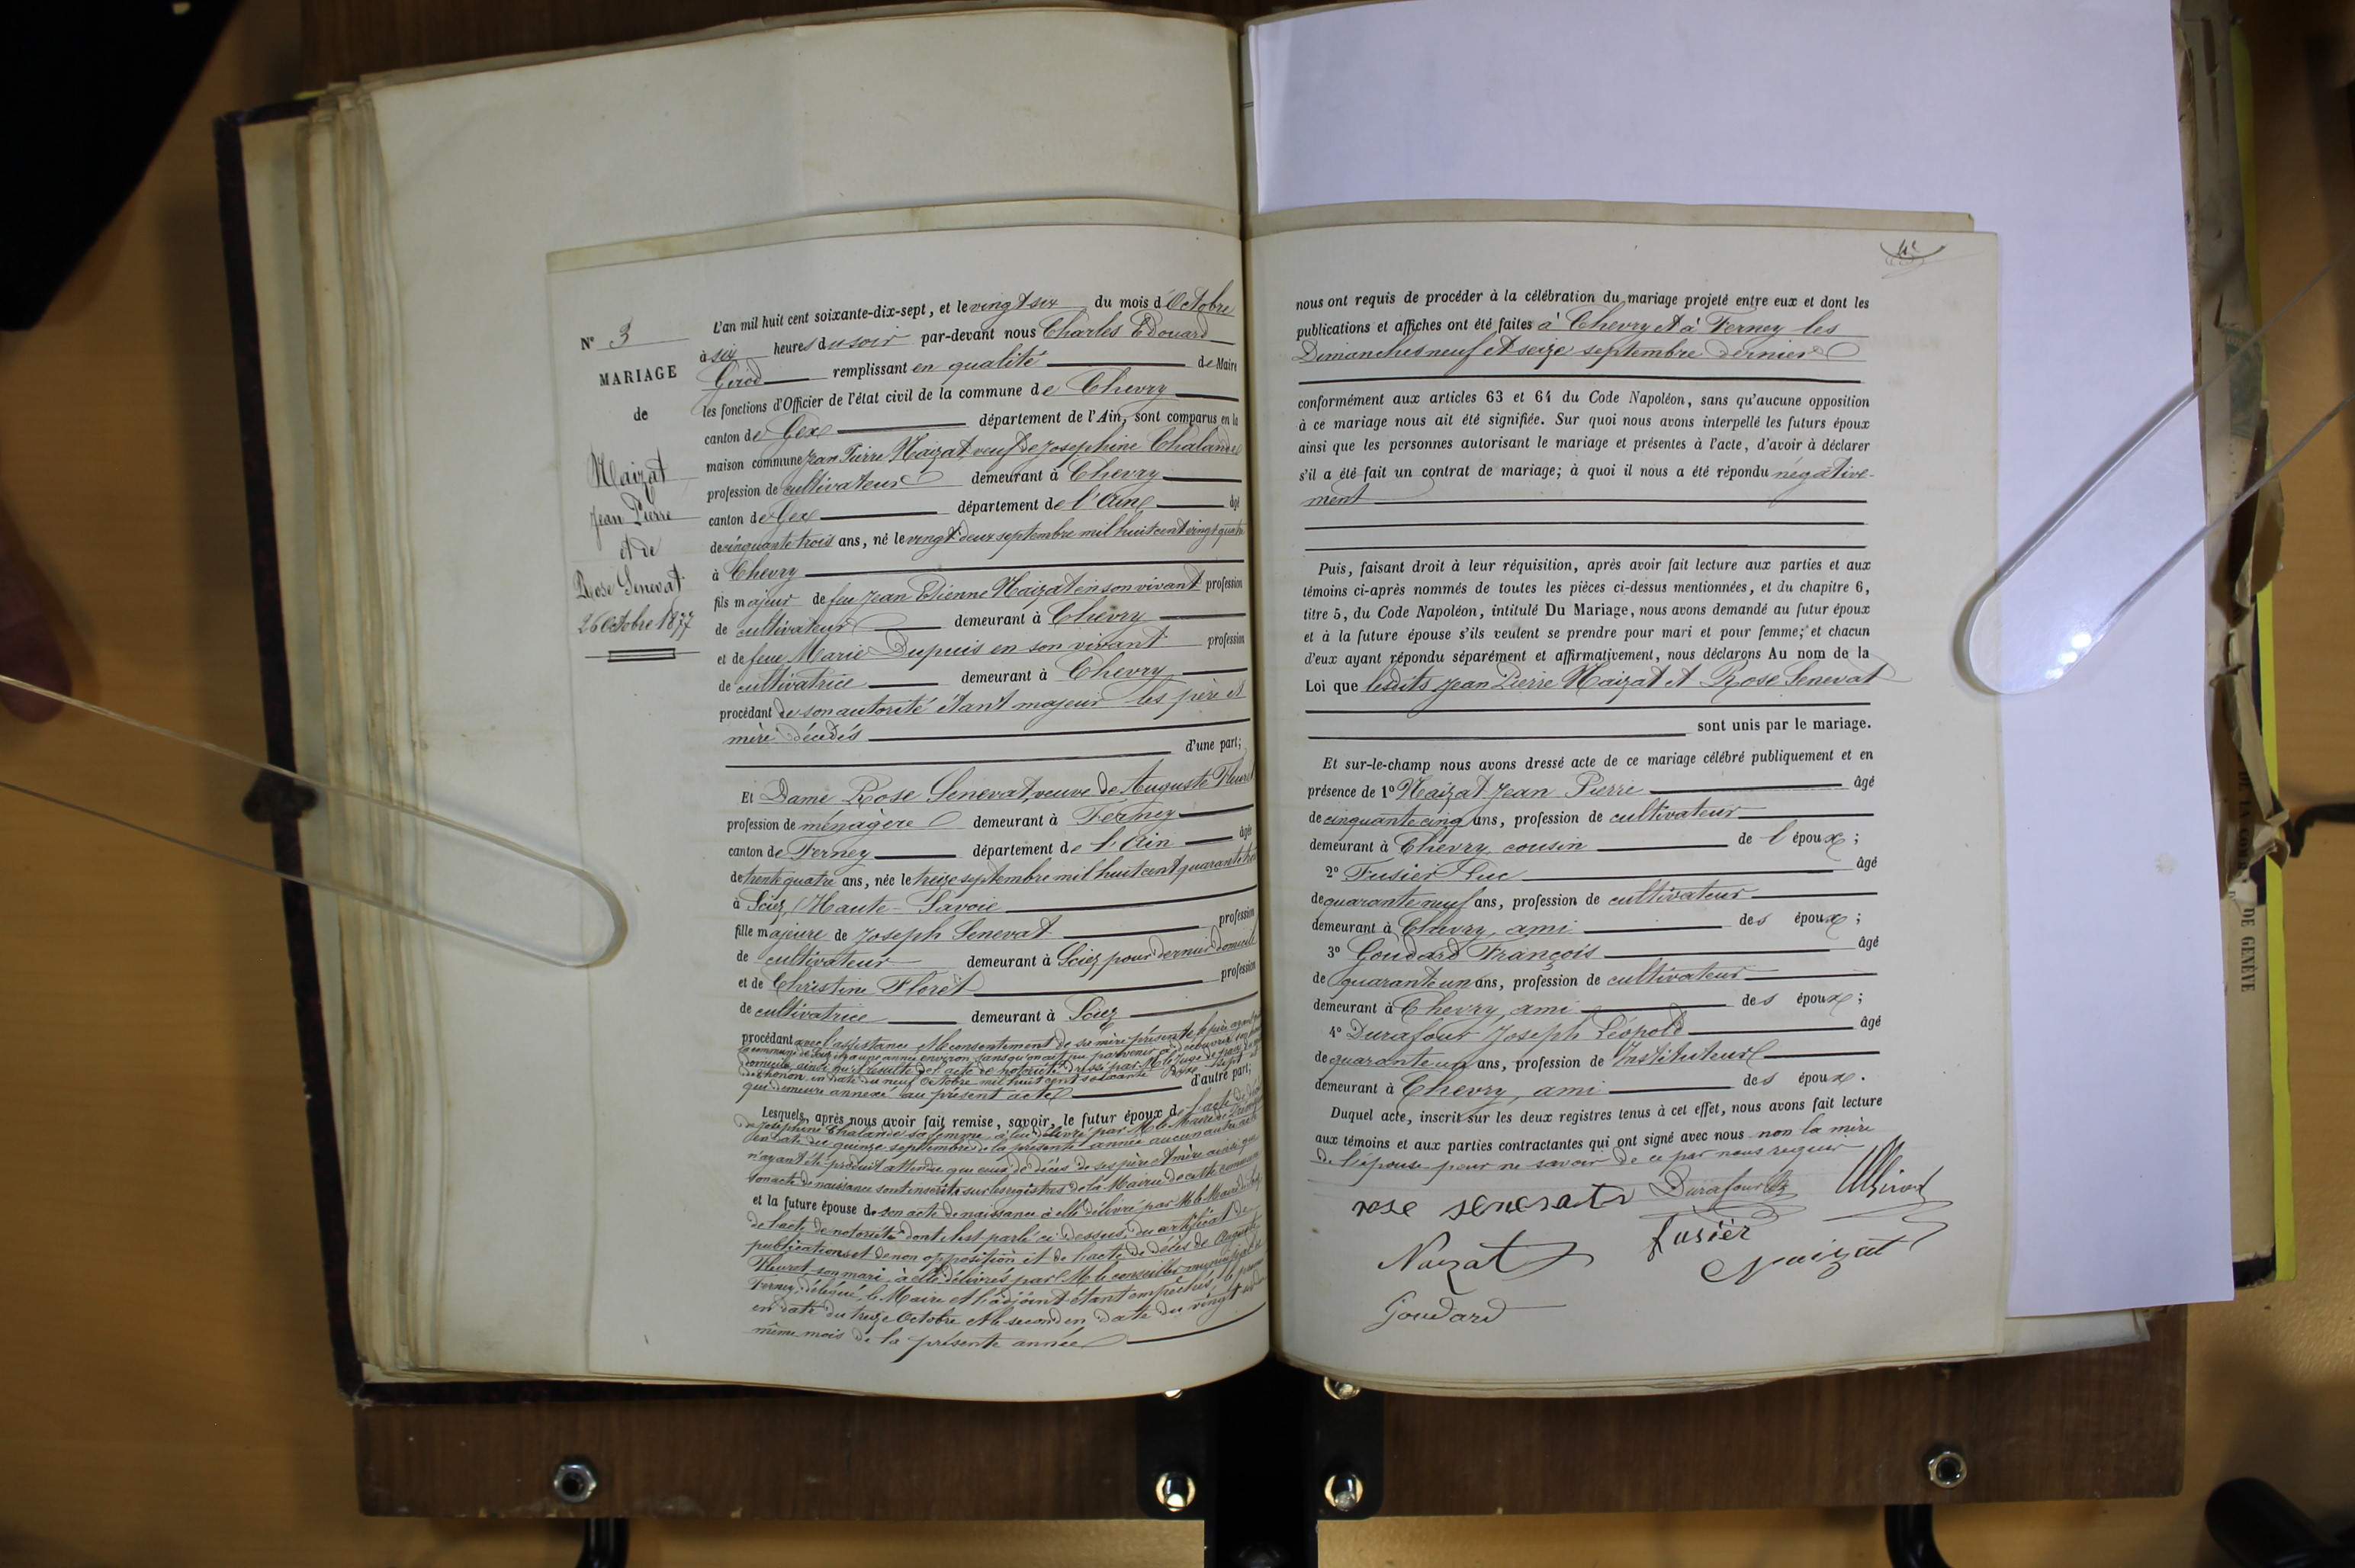 N° 3
MARIAGE
de
Naizat
Jean Pierre
et de
Rose Senevat
26 Octobre 1877
L'an mil huit cent soixante-dix-sept, et le vingt six du mois d'Octobre
à six heures du soir par-devant nous Charles Edouard
Girod remplissant en qualité de Maire
les fonctions d'Officier de l'état civil de la commune de Chevry
canton de Gex département de l'Ain, sont comparus en la
maison commune Jean Pierre Naizat, veuf de Josephine Chalande
profession de cultivateur demeurant à Chevry
canton de Gex département de l'Ain âgé
de cinquante trois ans, né le vingt deux septembre mil huit cent vingt quatre
à Chevry
fils majeur de feu Jean Etienne Naizat en son vivant profession
de cultivateur demeurant à Chevry
et de feue Marie Dupuis en son vivant profession
de cultivatrice demeurant à Chevry
procédant de son autorité étant majeur les père et
mère décédés
d'une part;
Et Dame Rose Senevat, veuve de Auguste Fleuret
profession de ménagère demeurant à Ferney
canton de Ferney département de l'Ain âgée
de trente quatre ans, née le treize septembre mil huit cent quarante trois
à Sciez, Haute-Savoie
fille majeure de Joseph Senevat profession
de cultivateur demeurant à Sciez pour dernier domicile
et de Christine Floret profession
de cultivatrice demeurant à Sciez
procédant avec l'assistance et le consentement de sa mère présente le père ayant
la commune de Sciez il y a une année environ, sans qu'on ait pu parvenir à découvrir son
domicile, ainsi qu'il résulte de l'acte de notoriété dressé par M. le Juge de paix
de Thonon, en date du neuf Octobre mil huit cent soixante dix sept et
qui demeure annexé au présent acte d'autre part;
Lesquels, après nous avoir fait remise, savoir, le futur époux de l'acte de décès
de Josephine Chalande sa femme, à lui délivré par M. le Maire de
en date du quinze septembre de la présente année aucun autre acte
n'ayant été produit attendu que ceux de décès de ses père et mère ainsi que
son acte de naissance sont inscrits sur les registres de la Mairie de cette commune
et la future épouse de son acte de naissance à elle délivré par M. le Maire de Sciez
de l'acte de notoriété dont il est parlé ci-dessus, du certificat de
publications et de non opposition et de l'acte de décès de Auguste
Fleuret son mari, à elle délivrés par M. le conseiller municipal de
Ferney, délégué, le Maire et l'adjoint étant empêchés, le premier
en date du treize Octobre et le second en date du vingt
même mois de la présente année
4e
nous ont requis de procéder à la célébration du mariage projeté entre eux et dont les
publications et affiches ont été faites à Chevry et à Ferney les
Dimanches neuf et seize septembre dernier
conformément aux articles 63 et 64 du Code Napoléon, sans qu'aucune opposition
à ce mariage nous ait été signifiée. Sur quoi nous avons interpellé les futurs époux
ainsi que les personnes autorisant le mariage et présentes à l'acte, d'avoir à déclarer
s'il a été fait un contrat de mariage; à quoi il nous a été répondu négative-
ment
Puis, faisant droit à leur réquisition, après avoir fait lecture aux parties et aux
témoins ci-après nommés de toutes les pièces ci-dessus mentionnées, et du chapitre 6,
titre 5, du Code Napoléon, intitulé Du Mariage, nous avons demandé au futur époux
et à la future épouse s'ils veulent se prendre pour mari et pour femme; et chacun
d'eux ayant répondu séparément et affirmativement, nous déclarons Au nom de la
Loi que lesdits Jean Pierre Naizat et Rose Senevat
sont unis par le mariage.
Et sur-le-champ nous avons dressé acte de ce mariage célébré publiquement et en
présence de 1° Naizat Jean Pierre âgé
de cinquante cinq ans, profession de cultivateur
demeurant à Chevry, cousin de l'époux;
2° Fusier Luc âgé
de quarante neuf ans, profession de cultivateur
demeurant à Chevry, ami des époux;
3° Goudard François âgé
de quarante un ans, profession de cultivateur
demeurant à Chevry, ami des époux;
4° Durafour Joseph Léopold âgé
de quarante un ans, profession de Instituteur
demeurant à Chevry, ami des époux.
Duquel acte, inscrit sur les deux registres tenus à cet effet, nous avons fait lecture
aux témoins et aux parties contractantes qui ont signé avec nous non la mère
de l'épouse pour ne savoir de ce par nous requis
rose senevat Durafour
Nazat fusier
Naizat
Goudard
DE GENÈVE